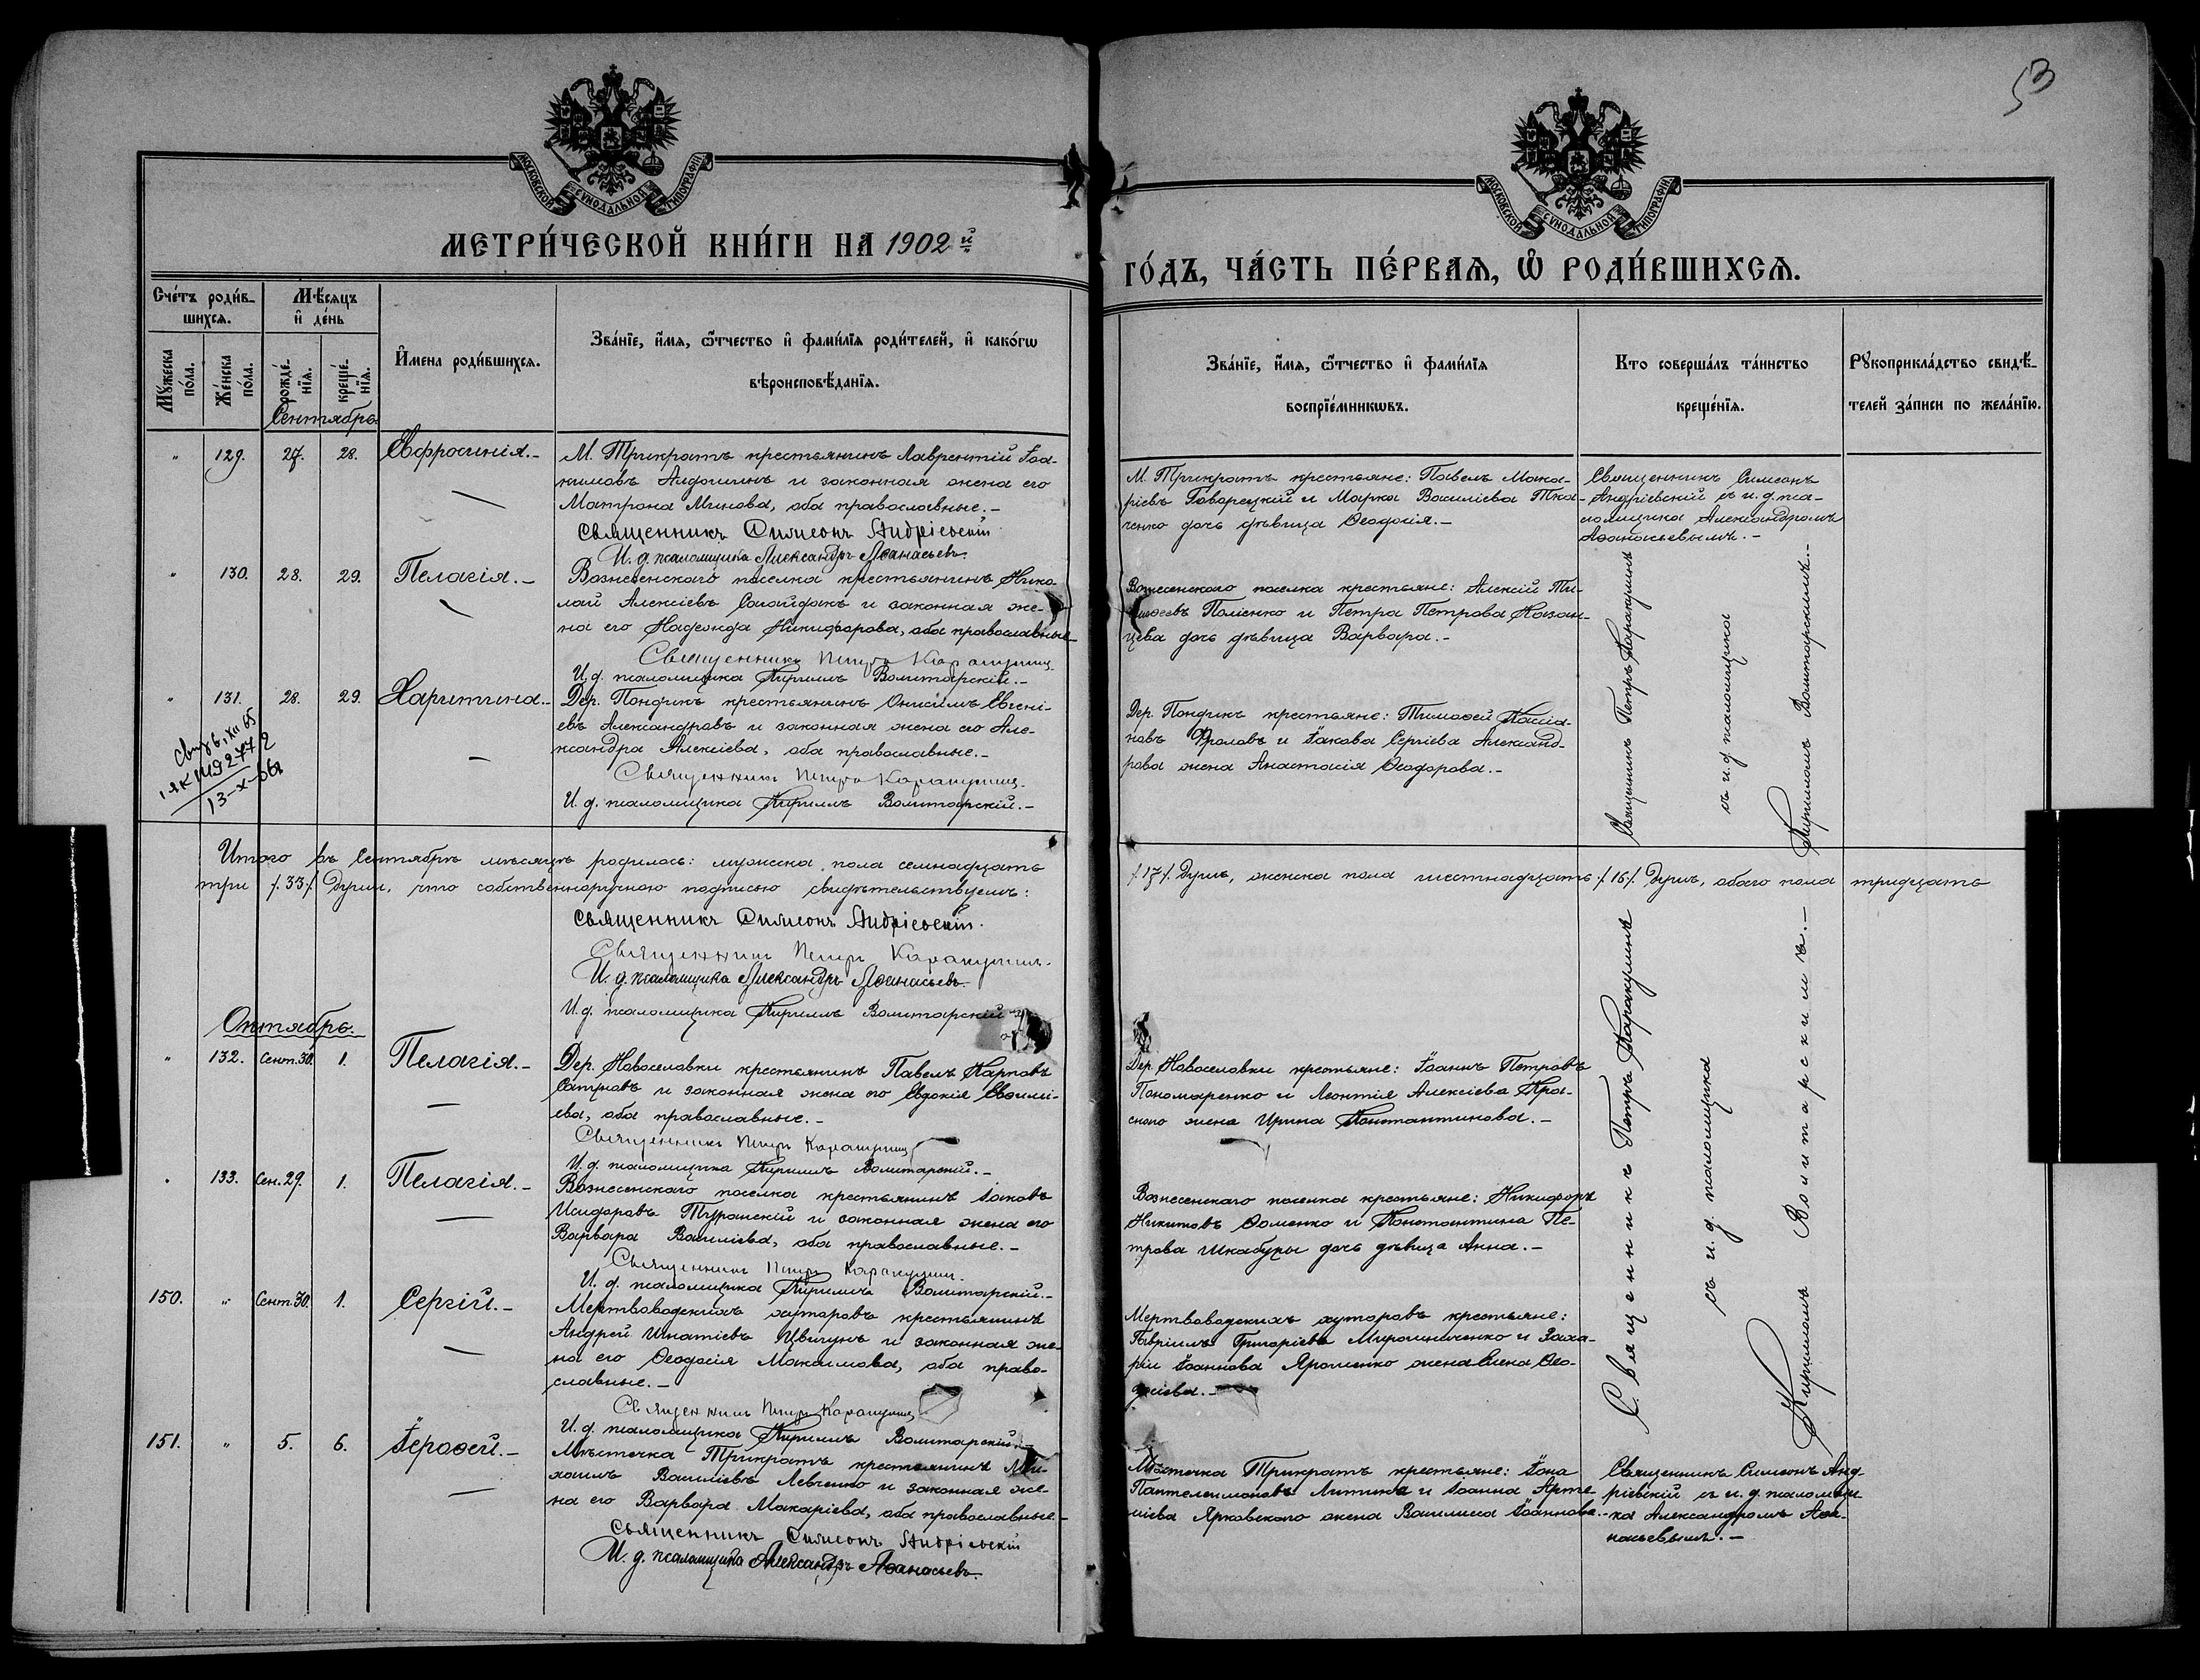 53
МОСКОВСКОЙ СУНОДАЛЬНОЙ ТИПОГРАФІИ
МОСКОВСКОЙ СУНОДАЛЬНОЙ ТИПОГРАФІИ
МЕТРИ́ЧЕСКОЙ КНИ́ГИ НА 1902й
ГО́ДЪ, ЧА́СТЬ ПЕ́РВАѦ, Ѡ РОДИ́ВШИХСѦ.
Сче́тъ роди́в-
шихсѧ.
Мѣ́сѧцъ
и де́нь
Мꙋ́жеска
по́ла.
Же́нска
по́ла.
рожде́-
нїѧ.
креще́-
нїѧ.
Имена роди́вшихсѧ.
Зва́нїе, и́мѧ, ѻ́тчество и фами́лїѧ роди́телей, и како́гѡ
вѣроисповѣ́данїѧ.
Зва́нїе, и́мѧ, ѻ́тчество и фами́лїѧ
воспрїе́мникѡвъ.
Кто соверша́лъ та́инство
креще́нїѧ.
Рꙋкоприкла́дство свидѣ́-
телей за́писи по жела́нїю.
Сентябрь
" 129. 27. 28. Евфросинія.-
М. Трикратъ крестьянинъ Лаврентій Іоа-
кимовъ и законная жена его
Матрона Минова, оба православные.-
Священникъ Симеонъ Андріевскій
И. д. псаломщика Александръ Аѳанасьевъ.
М. Трикратъ крестьяне: Павелъ Мака-
ріевъ Говорецкій и Марка Василіева Тка-
ченко дочь дѣвица Ѳеодосія.-
Священникъ Симеонъ
Андріевскій съ и. д. пса-
ломщика Александромъ
Аѳанасьевымъ.-
" 130. 28. 29. Пелагія.-
Вознесенскаго поселка крестьянинъ Нико-
лай Алексіевъ Сагайдакъ и законная же-
на его Надежда Никифорова, оба православные
Священникъ Петръ Каракулинъ
И. д. псаломщика Кириллъ Волитарскій.-
Вознесенскаго поселка крестьяне: Алексій Ти-
моѳеевъ Поліенко и Петра Петрова Казан-
цева дочь дѣвица Варвара.-
" 131. 28. 29. Харитина.-
Дер. Пондикъ крестьянинъ Онисимъ Евгені-
евъ Александровъ и законная жена его Але-
ксандра Алексіева, оба православные.-
Священникъ Петръ Каракулинъ.
И. д. псаломщика Кириллъ Волитарскій.-
Дер. Пондикъ крестьяне: Тимоѳей Кассіа-
новъ Фроловъ и Іакова Сергіева Александ-
рова жена Анастасія Ѳеодорова.-
13-X-
Священникъ Петръ Каракулинъ
съ и. д. псаломщика
Кирилломъ Волитарскимъ.-
Итого въ Сентябрѣ мѣсяцѣ родилось: мужеска пола семнадцать
/.17/. душъ, женска пола шестнадцать /.16/. душъ, обоего пола тридцать
три /.33/. души, что собственноручною подписью свидѣтельствуемъ:
Священникъ Симеонъ Андріевскій.
Священникъ Петръ Каракулинъ.
И. д. псаломщика Александръ Аѳанасьевъ.
И. д. псаломщика Кириллъ Волитарскій
Октябрь.
" 132. Сент. 30. 1. Пелагія.-
Дер. Новоселовки крестьянинъ Павелъ Карповъ
и законная жена его Евдокія
ева, оба православные.-
Священникъ Петръ Каракулинъ
И. д. псаломщика Кириллъ Волитарскій.-
Дер. Новоселовки крестьяне: Іоаннъ Петровъ
Пономаренко и Леонтія Алексіева Кра-
снаго жена Ирина Константинова.-
" 133. Сен. 29. 1. Пелагія.-
Вознесенскаго поселка крестьянинъ Іаковъ
Исидоровъ Туранскій и законная жена его
Варвара Василіева, оба православные.-
Священникъ Петръ Каракулинъ.
И. д. псаломщика Кириллъ Волитарскій.-
Вознесенскаго поселка крестьяне: Никифоръ
Никитовъ Ѳоменко и Константина Пе-
трова Шкабуры дочь дѣвица Анна.-
150. " Сент. 30. 1. Сергій.-
Мертвоводскихъ хуторовъ крестьянинъ
Андрей Игнатіевъ Цвигунъ и законная же-
на его Ѳеодосія Максимова, оба право-
славные.-
Священникъ Петръ Каракулинъ
И. д. псаломщика Кириллъ Волитарскій.-
Мертвоводскихъ хуторовъ крестьяне:
Гавріилъ Григоріевъ Мирошниченко и Заха-
ріи Іоаннова Яроменко жена Елена Ѳео-
досіева.-
Священникъ Петръ Каракулинъ
съ и. д. псаломщика
Кирилломъ Волитарскимъ.-
151. " 5. 6. Іероѳей.-
Мѣстечка Трикратъ крестьянинъ Ми-
хаилъ Василіевъ Левченко и законная же-
на его Варвара Макаріева, оба православные.-
Священникъ Симеонъ Андріевскій
И. д. псаломщика Александръ Аѳанасьевъ.
Мѣстечка Трикратъ крестьяне: Іона
Пантелеимоновъ Литвина и Іоанна Арте-
міева Ярковскаго жена Василиса Іоаннова.-
Священникъ Симеонъ Анд-
ріевскій съ и. д. псаломщи-
ка Александромъ Аѳа-
насьевымъ.-